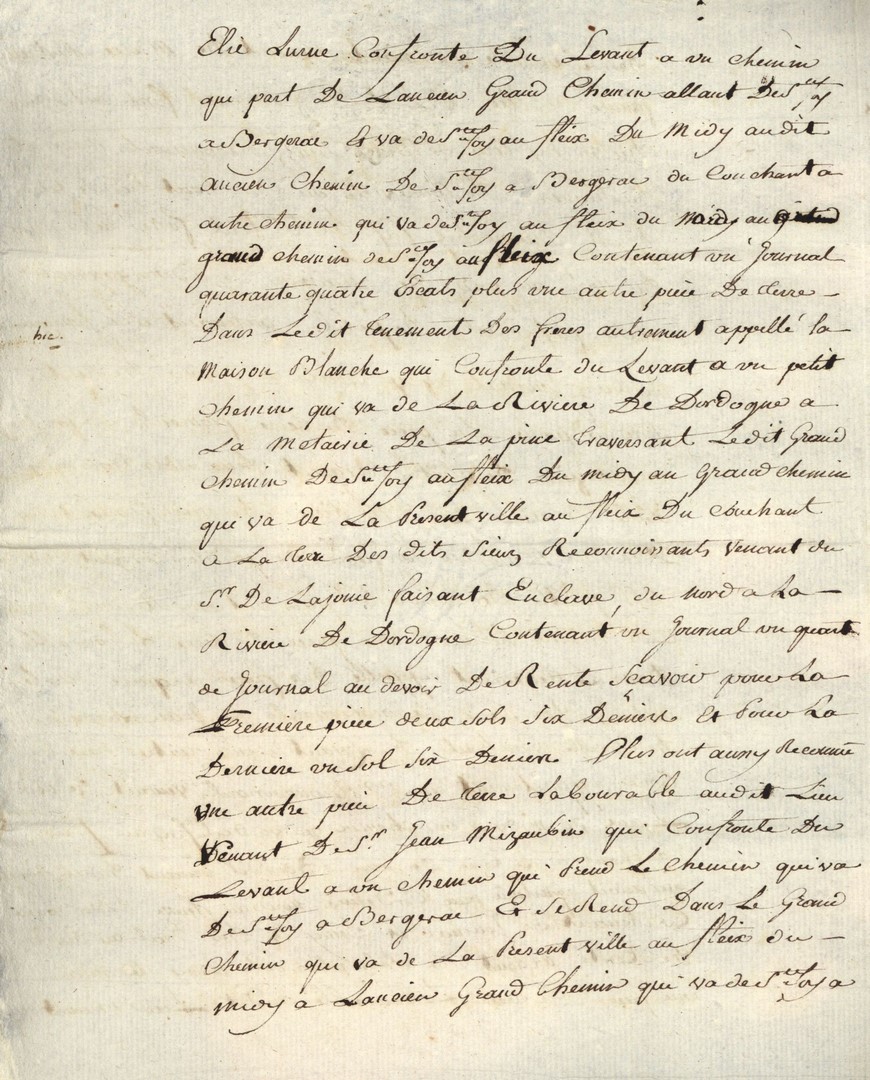 Elie Lurne Confronte Du Levant a un chemin
qui part De Lancien Grand Chemin allant De Ste foy
a Bergerac Et va de Ste foy au fleix Du Midy au dit
ancien Chemin De Ste foy a Bergerac du Couchant a
autre chemin qui va de Ste foy au fleix du Midy au
grand chemin de Ste foy au fleix Contenant un Journal
quarante quatre Escats plus une autre piece De terre
Dans Ledit tenement Des freres autrement appellé la
hic.
Maison Blanche qui Confronte du Levant a un petit
chemin qui va de La Riviere De Dordogne a
La Metairie De La pine traversant Ledit Grand
chemin De Ste foy au fleix Du midy au Grand chemin
qui va de La Present ville au fleix Du Couchant
a La terre Des dits Sieurs Reconnoissants Venant du
Sr. De Lajonie faisant Enclave, du nord a La
Riviere De Dordogne Contenant un Journal un quart
de Journal au devoir De Rente Scavoir pour La
Premiere piece deux sols six Deniers Et Pour La
Derniere un sol six Deniers Plus ont aussy Reconnu
une autre piece De terre Labourable audit Lieu
Venant De Sr. Jean Mizaubin qui Confronte Du
Levant a un chemin qui Prend Le chemin qui va
De Ste foy a Bergerac Et se Rend Dans Le Grand
Chemin qui va de La Present ville au fleix du
midy a Lancien Grand Chemin qui va de Ste foy a